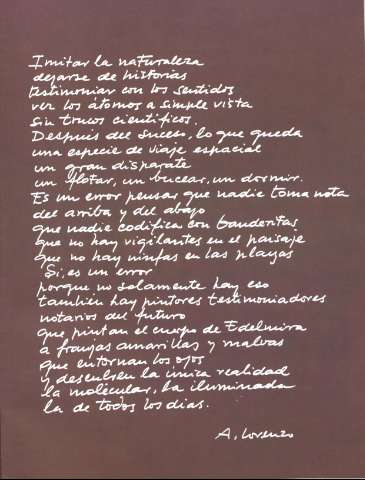 Imitar la naturaleza
dejarse de historias
testimoniar con los sentidos
ver los átomos a simple vista
sin trucos científicos.
Después del suceso, lo que queda
una especie de viaje espacial
un gran disparate
un flotar, un bucear, un dormir.
Es un error pensar que nadie toma nota
del arriba y del abajo
que nadie codifica con banderitas
que no hay vigilantes en el paisaje
que no hay ninfas en las playas
Si, es un error
porque no solamente hay eso
también hay pintores testimoniadores
notarios del futuro
que pintan el cuerpo de Edelmira
a franjas amarillas y malvas
que entornan los ojos
y descubren la única realidad
la molécular, la iluminada
la de todos los días.
A. Lorenzo